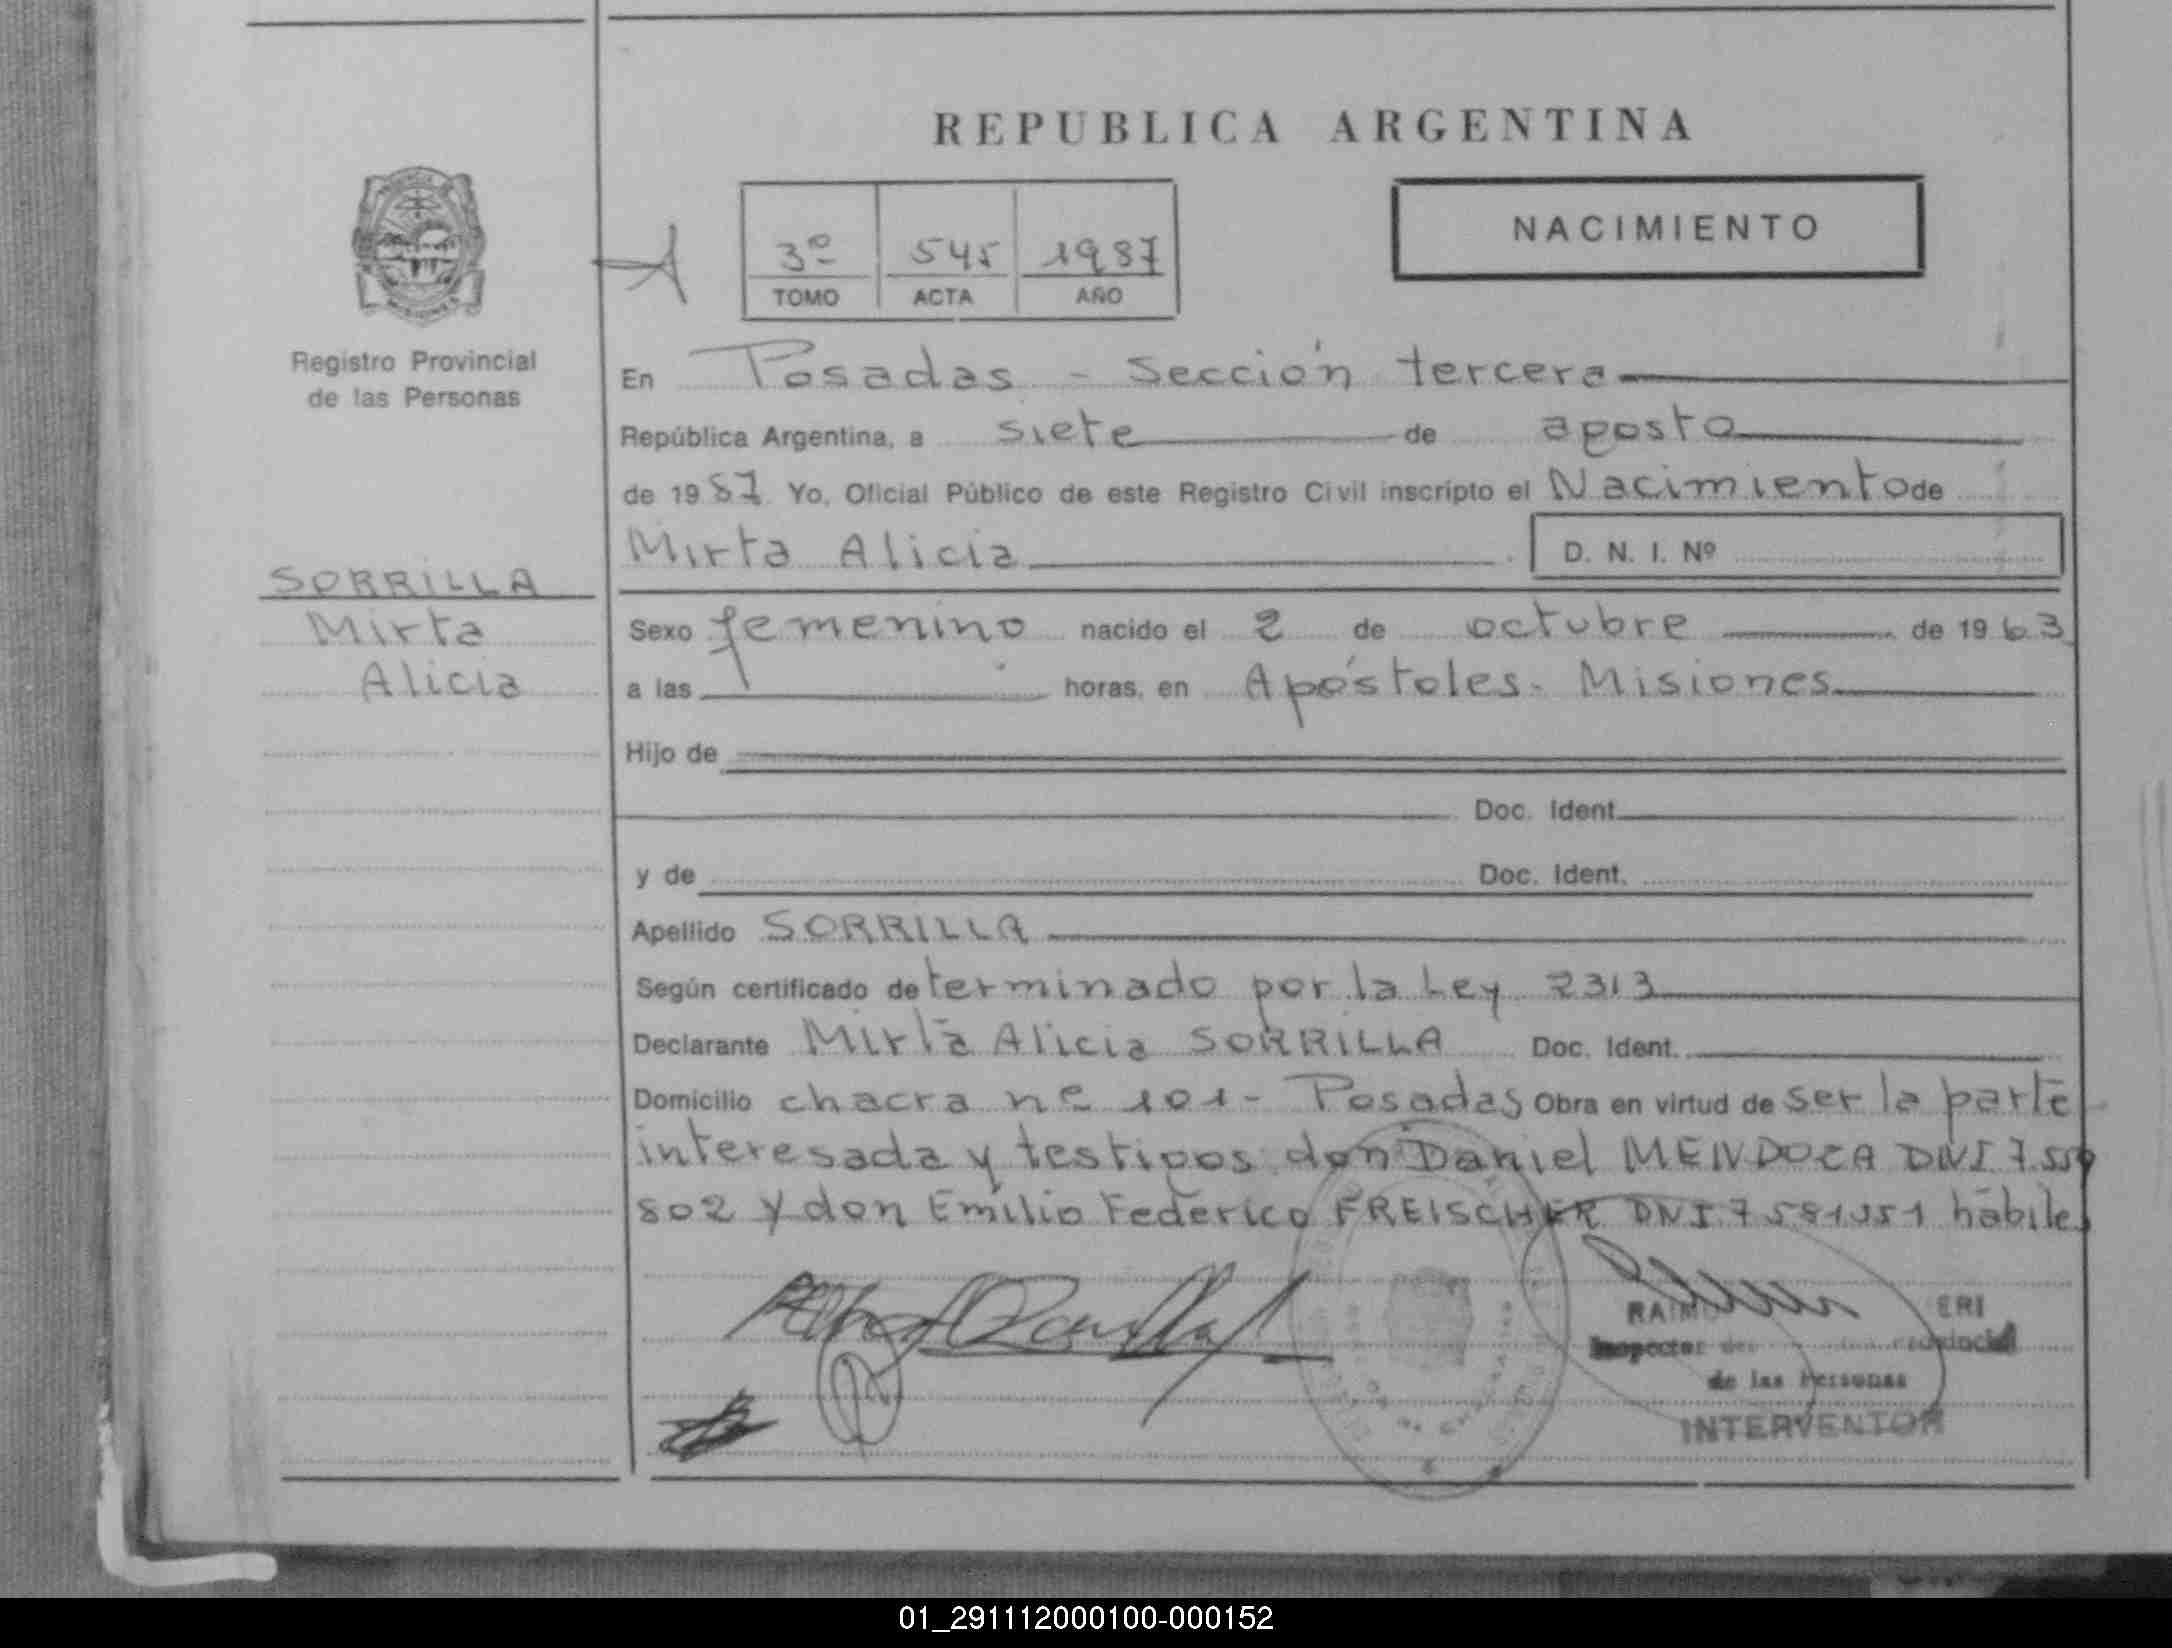 REPUBLICA ARGENTINA
NACIMIENTO
3º 545 1987
TOMO ACTA AÑO
Registro Provincial
de las Personas
En Posadas - Sección tercera
República Argentina, a siete de agosto
de 1987 Yo, Oficial Público de este Registro Civil inscripto el Nacimiento de
Mirta Alicia
D. N. I. Nº
SORRILLA
Mirta
Alicia
Sexo femenino nacido el 2 de octubre de 1963
a las horas, en Apóstoles - Misiones
Hijo de
Doc. Ident.
y de Doc. Ident.
Apellido SORRILLA
Según certificado determinado por la Ley 2313
Declarante Mirta Alicia SORRILLA Doc. Ident.
Domicilio chacra nº 101 - Posadas Obra en virtud de ser la parte
interesada y testigos don Daniel MENDOZA DNI 7.559
802 y don Emilio Federico FREISCHER DNI 7581351 hábiles
Inspector
de las Personas
INTERVENTOR
01_291112000100-000152